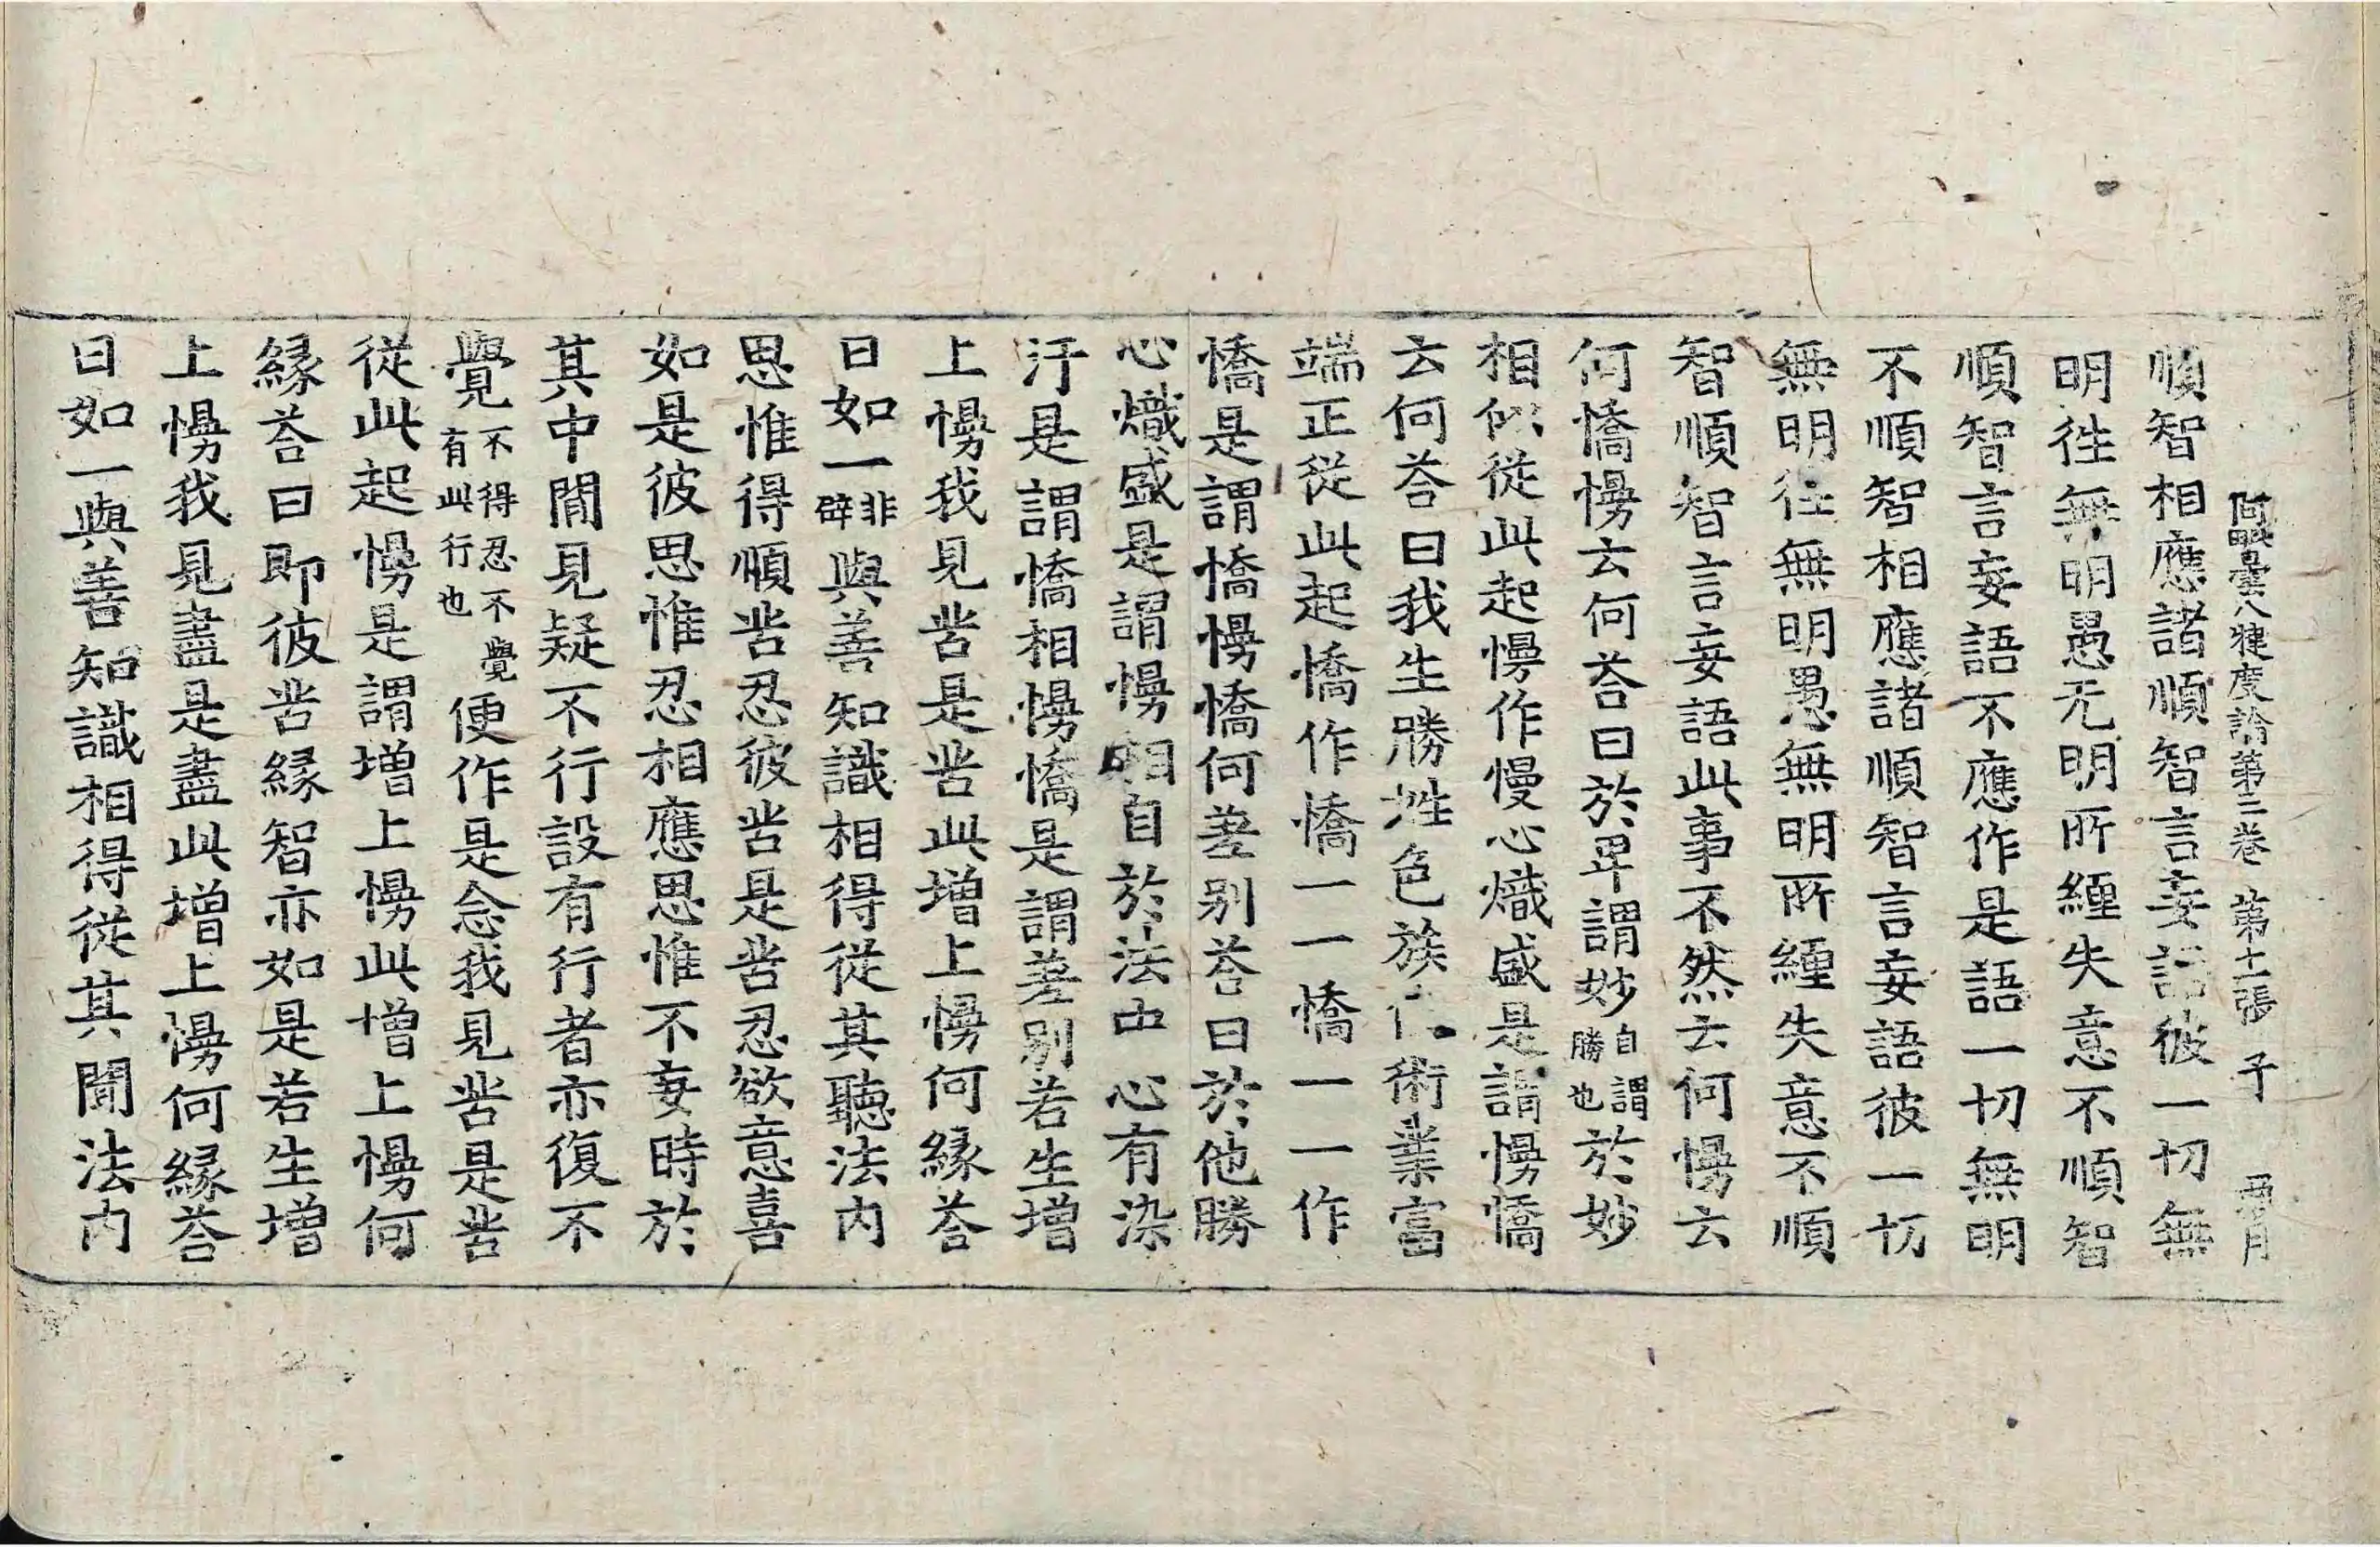 阿毗曇八犍度論第三卷 第十一張 子
順智相應諸順智言妄語彼一切無
明往無明愚无明所纏失意不順智
順智言妄語不應作是語一切無明
不順智相應諸順智言妄語彼一切
無明往無明愚無明所纏失意不順
智順智言妄語此事不然云何慢云
何憍慢云何荅曰於卑謂妙自謂勝也於妙
相似從此起慢作慢心熾盛是謂慢憍
云何荅曰我生勝姓色族伎術業富
端正從此起憍作憍一一憍一一作
憍是謂憍慢憍何差別荅曰於他勝
心熾盛是謂慢相自於法中心有染
汙是謂憍相慢憍是謂差別若生增
上慢我見苦是苦此增上慢何緣荅
曰如一非辟與善知識相得從其聽法內
思惟得順苦忍彼苦是苦忍欲意喜
如是彼思惟忍相應思惟不妄時於
其中間見疑不行設有行者亦復不
覺不得忍不覺有此行也便作是念我見苦是苦
從此起慢是謂增上慢此增上慢何
緣荅曰即彼苦緣智亦如是若生增
上慢我見盡是盡此增上慢何緣荅
曰如一與善知識相得從其聞法內